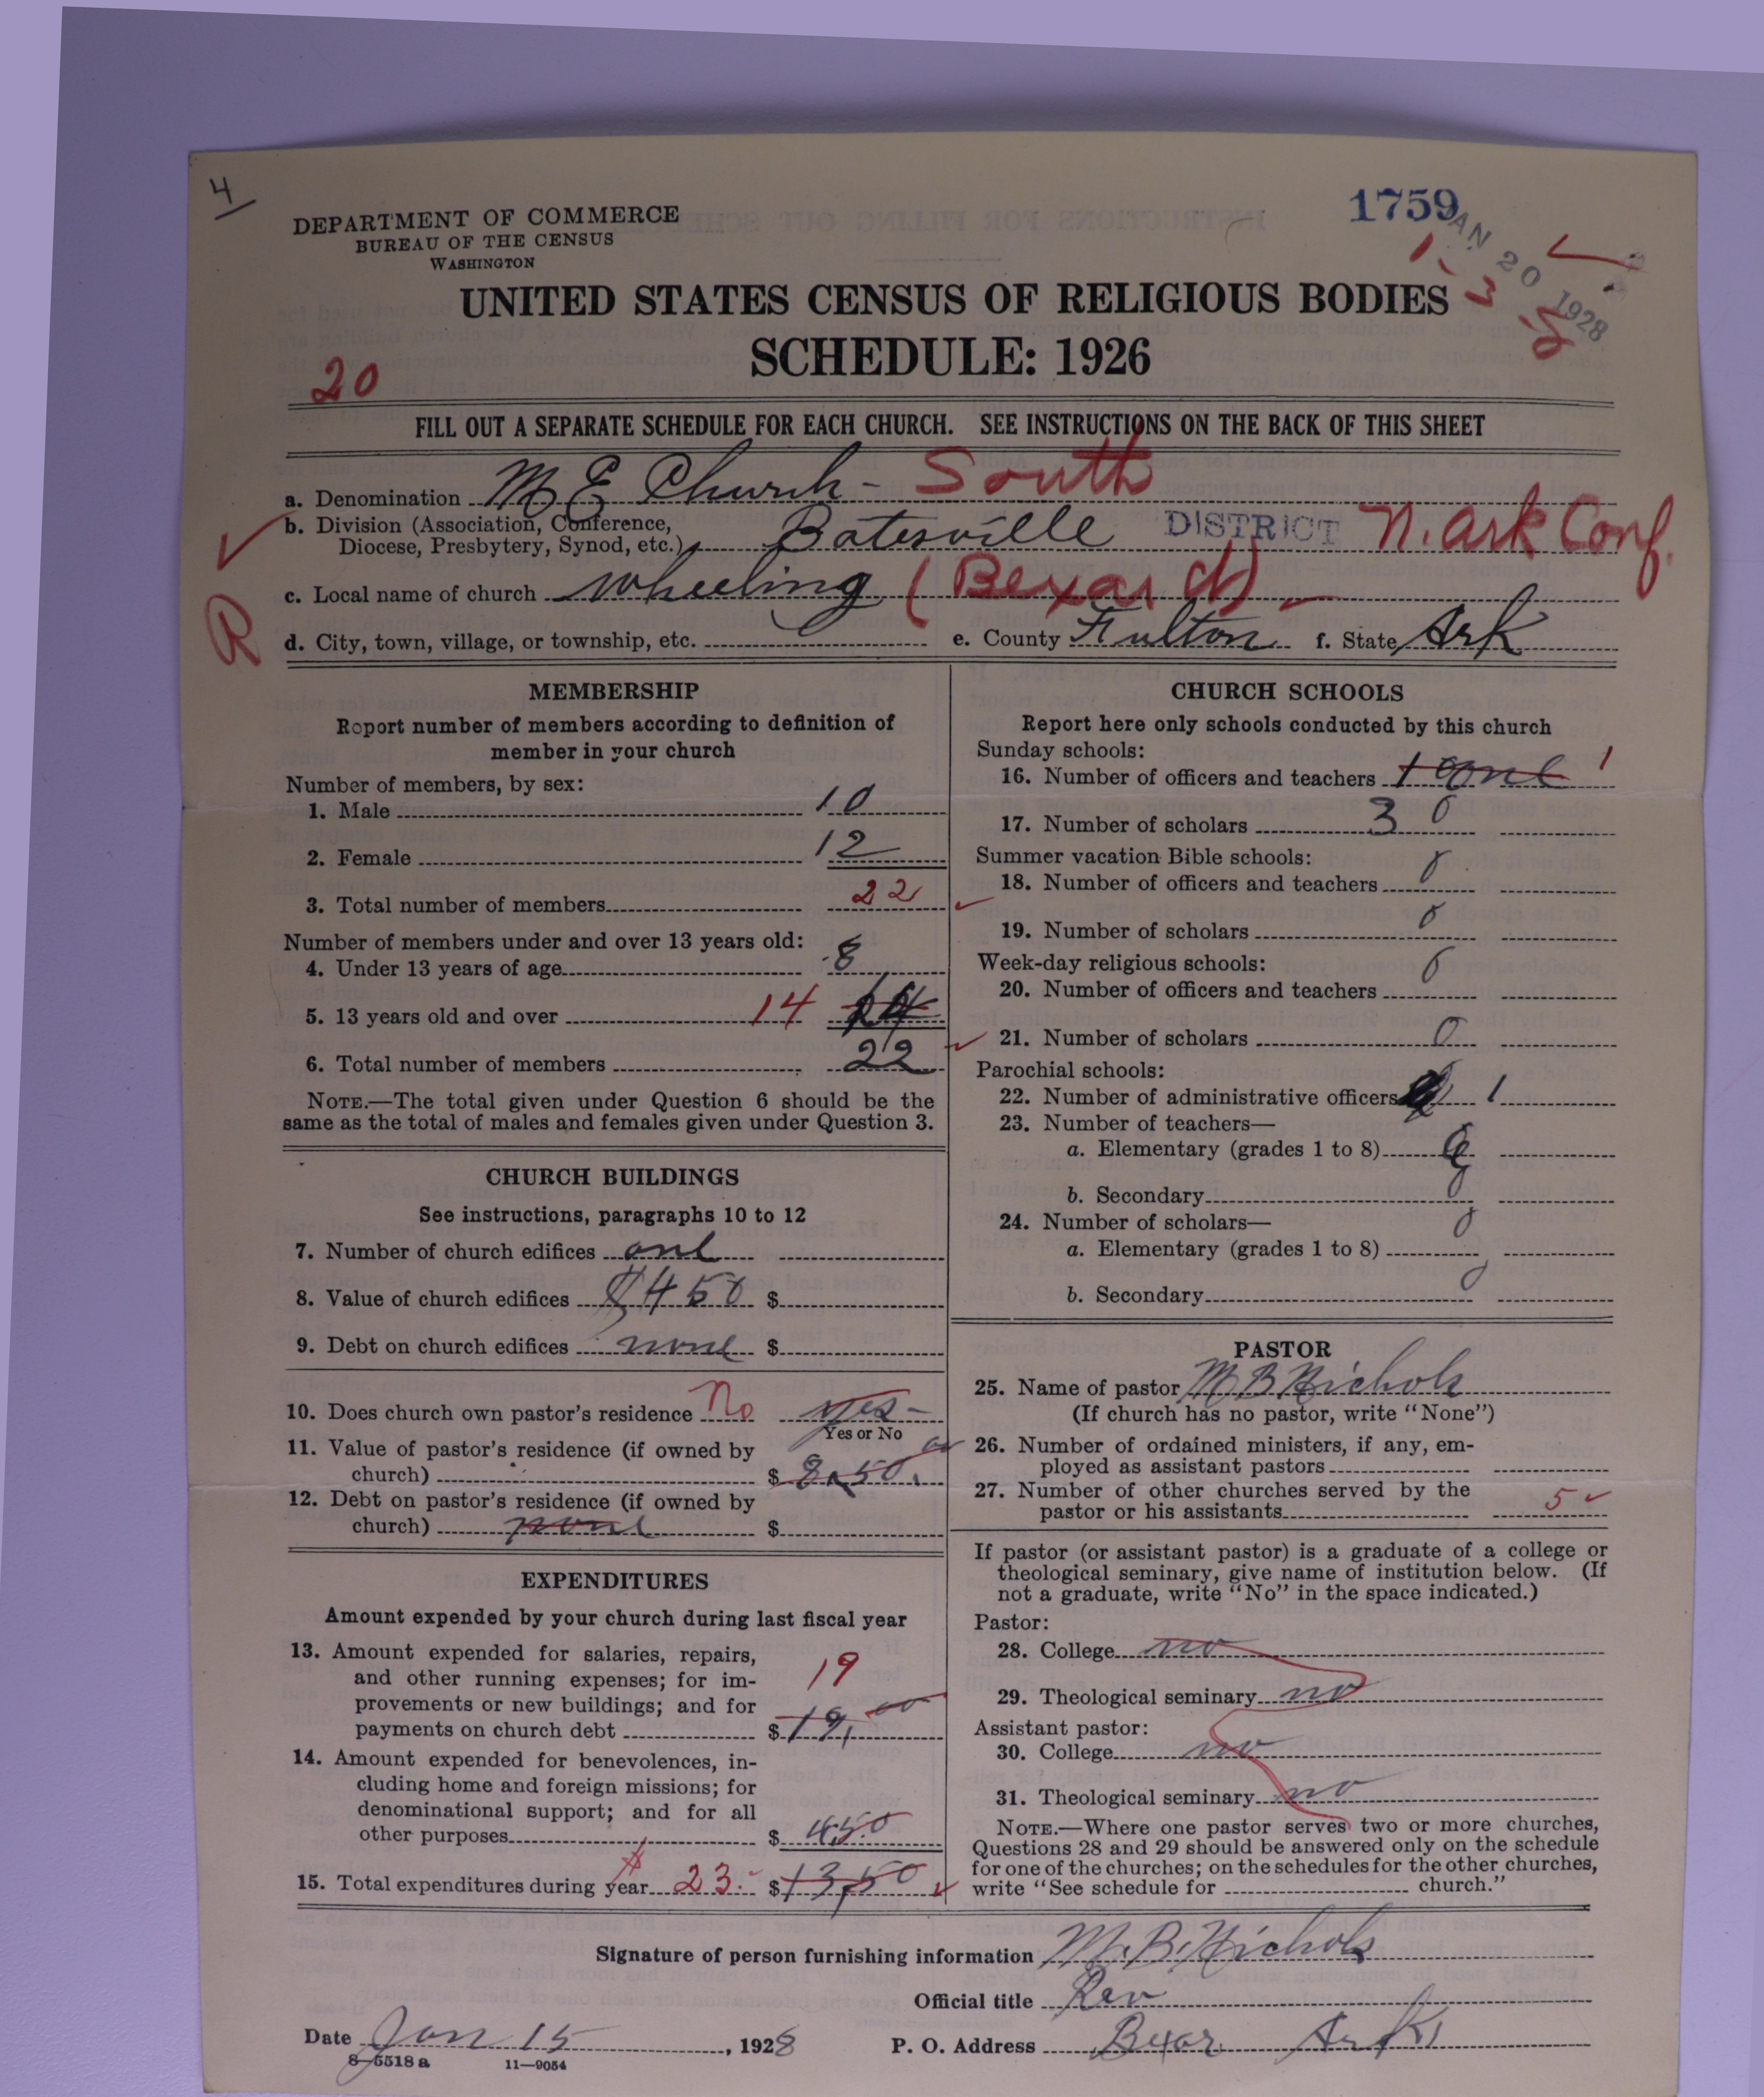 4
1759
JAN 20 1928
DEPARTMENT OF COMMERCE
BUREAU OF THE CENSUS
WASHINGTON
UNITED STATES CENSUS OF RELIGIOUS BODIES
SCHEDULE: 1926
20
FILL OUT A SEPARATE SCHEDULE FOR EACH CHURCH. SEE INSTRUCTIONS ON THE BACK OF THIS SHEET
a. Denomination M E Church - South
b. Division (Association, Conference,
Diocese, Presbytery, Synod, etc.) Batesville DISTRICT N. Ark Conf.
c. Local name of church Wheeling (Bexar Ch)
R
d. City, town, village, or township, etc. e. County Fulton f. State Ark
MEMBERSHIP
Report number of members according to definition of
member in your church
Number of members, by sex:
1. Male 10
2. Female 12
3. Total number of members 22
Number of members under and over 13 years old:
4. Under 13 years of age 8
5. 13 years old and over 14 14
6. Total number of members 22
NOTE.—The total given under Question 6 should be the
same as the total of males and females given under Question 3.
CHURCH BUILDINGS
See instructions, paragraphs 10 to 12
7. Number of church edifices one
8. Value of church edifices $450 $
9. Debt on church edifices none $
10. Does church own pastor's residence No yes-
Yes or No
11. Value of pastor's residence (if owned by
church) $ 850.00
12. Debt on pastor's residence (if owned by
church) none $
EXPENDITURES
Amount expended by your church during last fiscal year
13. Amount expended for salaries, repairs,
and other running expenses; for im-
provements or new buildings; and for
payments on church debt 19 $ 19,00
14. Amount expended for benevolences, in-
cluding home and foreign missions; for
denominational support; and for all
other purposes $ 4.50
15. Total expenditures during year $ 23.- $13,50
CHURCH SCHOOLS
Report here only schools conducted by this church
Sunday schools:
16. Number of officers and teachers 1 one 1
17. Number of scholars 30
Summer vacation Bible schools:
18. Number of officers and teachers 0
19. Number of scholars 0
Week-day religious schools:
20. Number of officers and teachers 0
21. Number of scholars 0
Parochial schools:
22. Number of administrative officers 1
23. Number of teachers—
a. Elementary (grades 1 to 8) 0
b. Secondary 0
24. Number of scholars— 0
a. Elementary (grades 1 to 8)
b. Secondary 0
PASTOR
25. Name of pastor M B Nichols
(If church has no pastor, write "None")
26. Number of ordained ministers, if any, em-
ployed as assistant pastors
27. Number of other churches served by the
pastor or his assistants 5
If pastor (or assistant pastor) is a graduate of a college or
theological seminary, give name of institution below. (If
not a graduate, write "No" in the space indicated.)
Pastor:
28. College no
29. Theological seminary no
Assistant pastor:
30. College no
31. Theological seminary no
NOTE.—Where one pastor serves two or more churches,
Questions 28 and 29 should be answered only on the schedule
for one of the churches; on the schedules for the other churches,
write "See schedule for church."
Signature of person furnishing information M. B. Nichols
Official title Rev
Date Jan 15, 1928 P. O. Address Bexar Ark
8-5518 a 11-9054